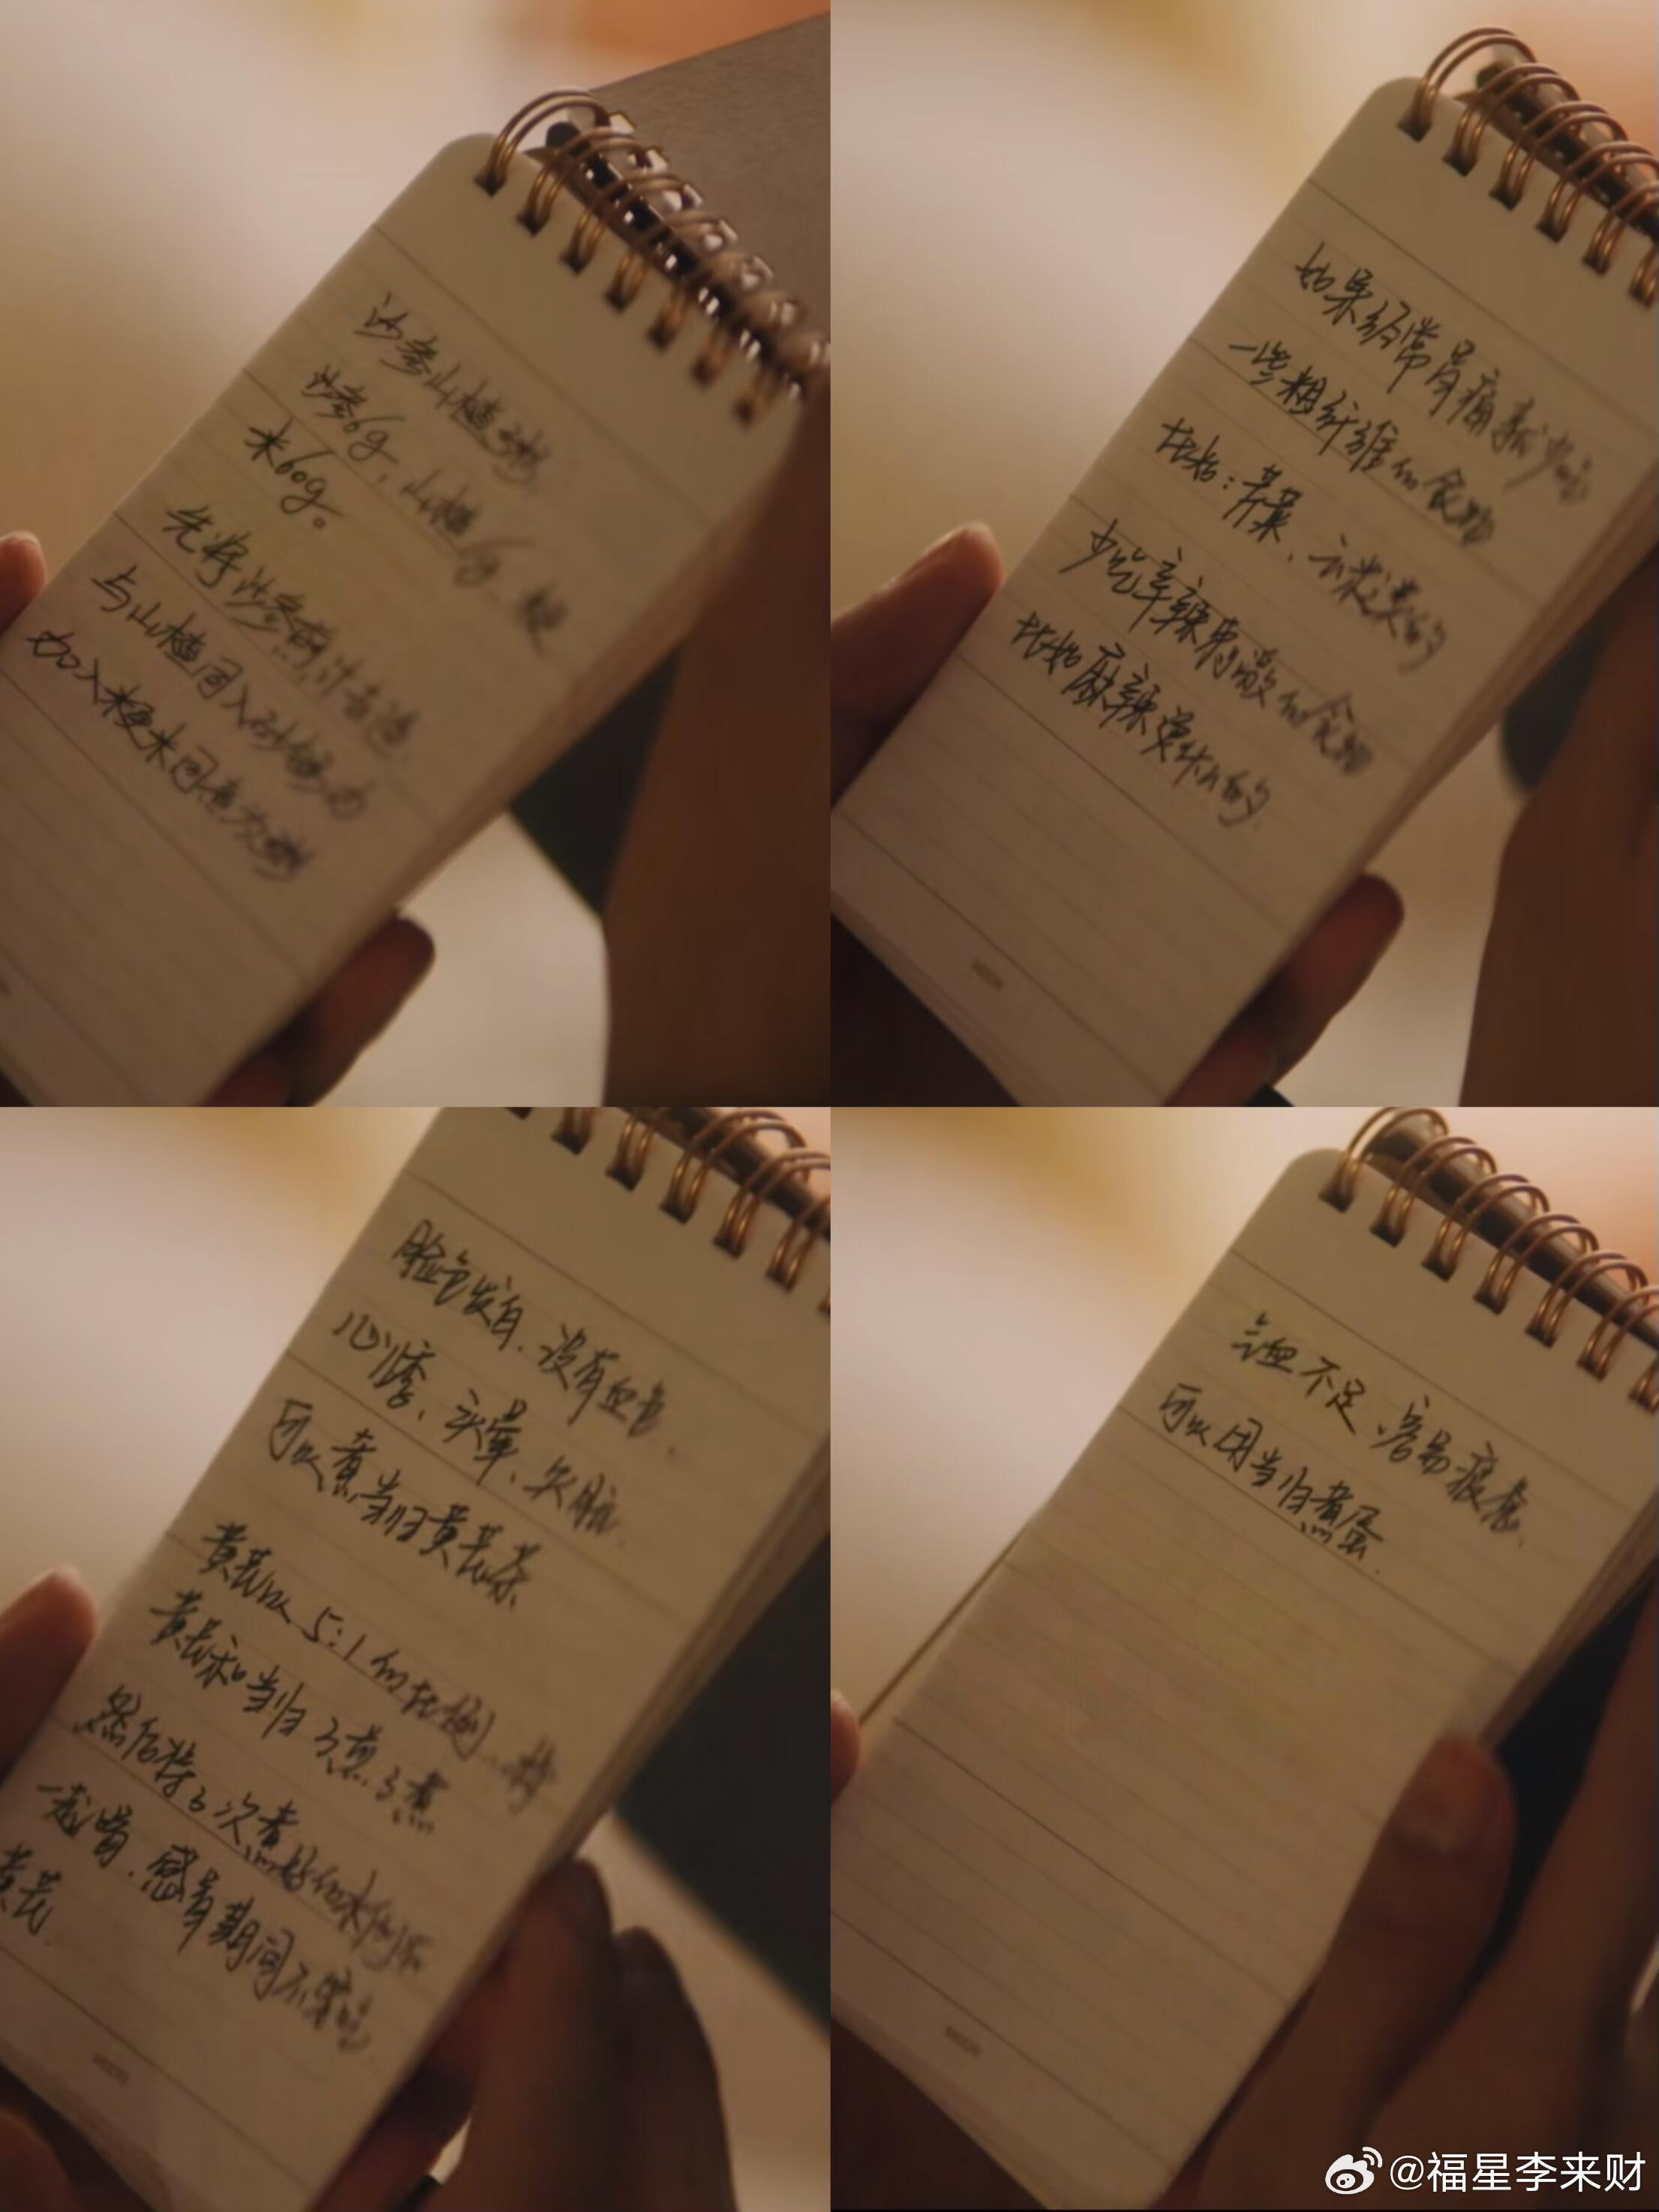 沙参山楂粥
沙参6g，山楂6g，粳
米60g。
先将沙参煎汁去渣
与山楂同入砂锅，
加入粳米同煮为粥
如果经常胃痛，减少吃
一些粗纤维的食物
比如：芹菜、
少吃辛辣刺激的食物
比如麻辣烫什么的
脸色发白、没有血色、
心悸、头晕、失眠
可以煮当归黄芪茶
黄芪以5:1的比例，将
黄芪和当归3煎3煮
然后将3次煮好的水倒在
一起喝，感冒期间不能吃
黄芪
气血不足，容易疲惫
可以用当归煮蛋
@福星李来财